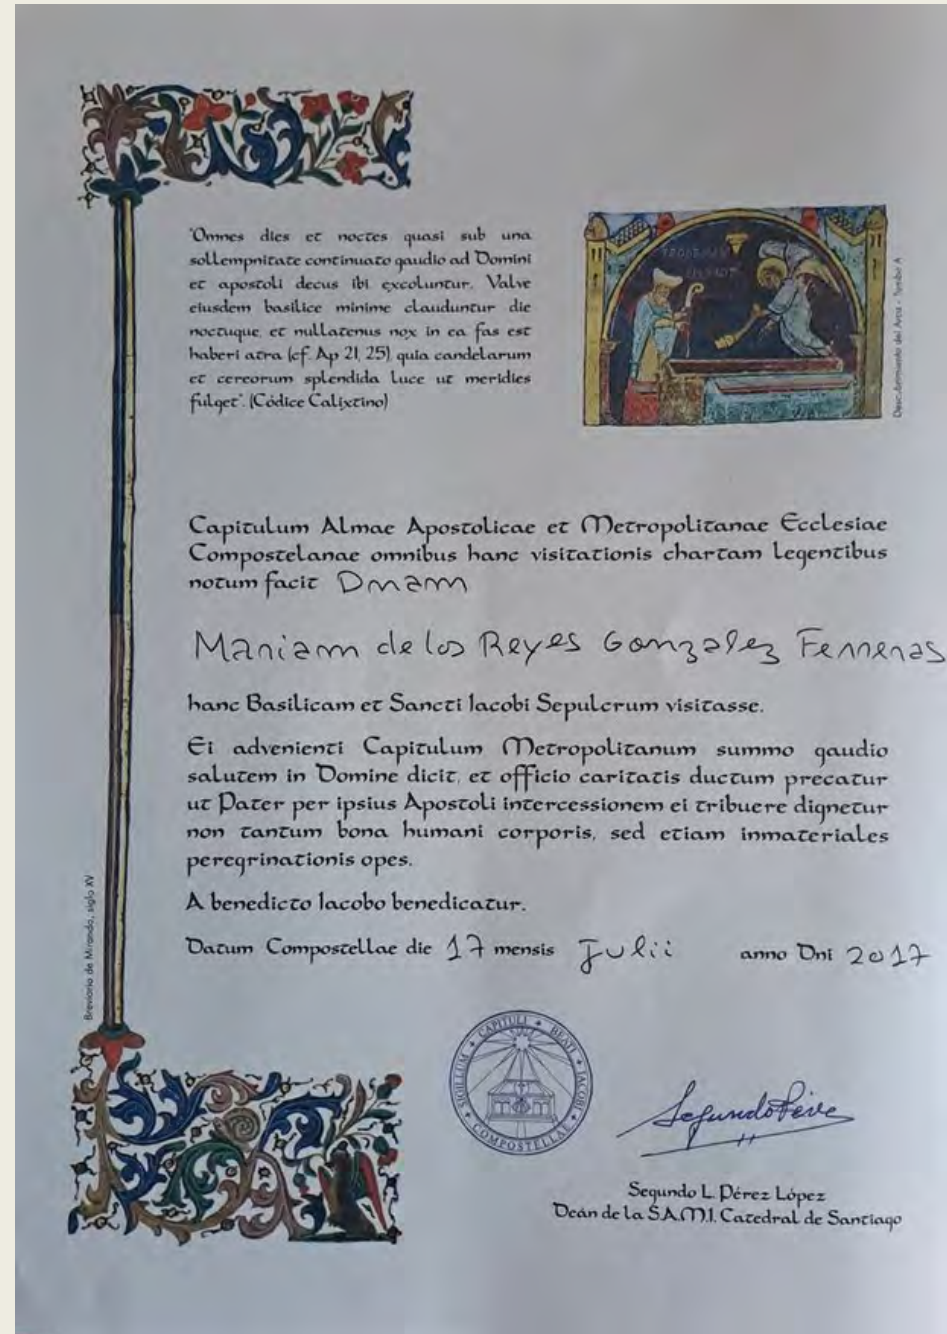 "Omnes dies et noctes quasi sub una
sollempnitate continuato gaudio ad Domini
et apostoli decus ibi excoluntur. Valve
eiusdem basilice minime clauduntur die
noctuque, et nullatenus nox in ea fas est
haberi atra (cf. Ap 21, 25), quia candelarum
et cereorum splendida luce ut meridies
fulget". (Códice Calixtino)
Descubrimiento del Arca - Tumbo A
Capitulum Almae Apostolicae et Metropolitanae Ecclesiae
Compostelanae omnibus hanc visitationis chartam legentibus
notum facit Dnam
Mariam de los Reyes Gonzalez Ferreras
hanc Basilicam et Sancti Iacobi Sepulcrum visitasse.
Ei advenienti Capitulum Metropolitanum summo gaudio
salutem in Domine dicit, et officio caritatis ductum precatur
ut Pater per ipsius Apostoli intercessionem ei tribuere dignetur
non tantum bona humani corporis, sed etiam inmateriales
peregrinationis opes.
A benedicto Iacobo benedicatur.
Datum Compostellae die 17 mensis Julii anno Dni 2017
Breviario de Miranda, siglo XV
SIGILLUM CAPITULI BEATI IACOBI
COMPOSTELLAE
Segundo L. Pérez López
Deán de la S.A.M.I. Catedral de Santiago